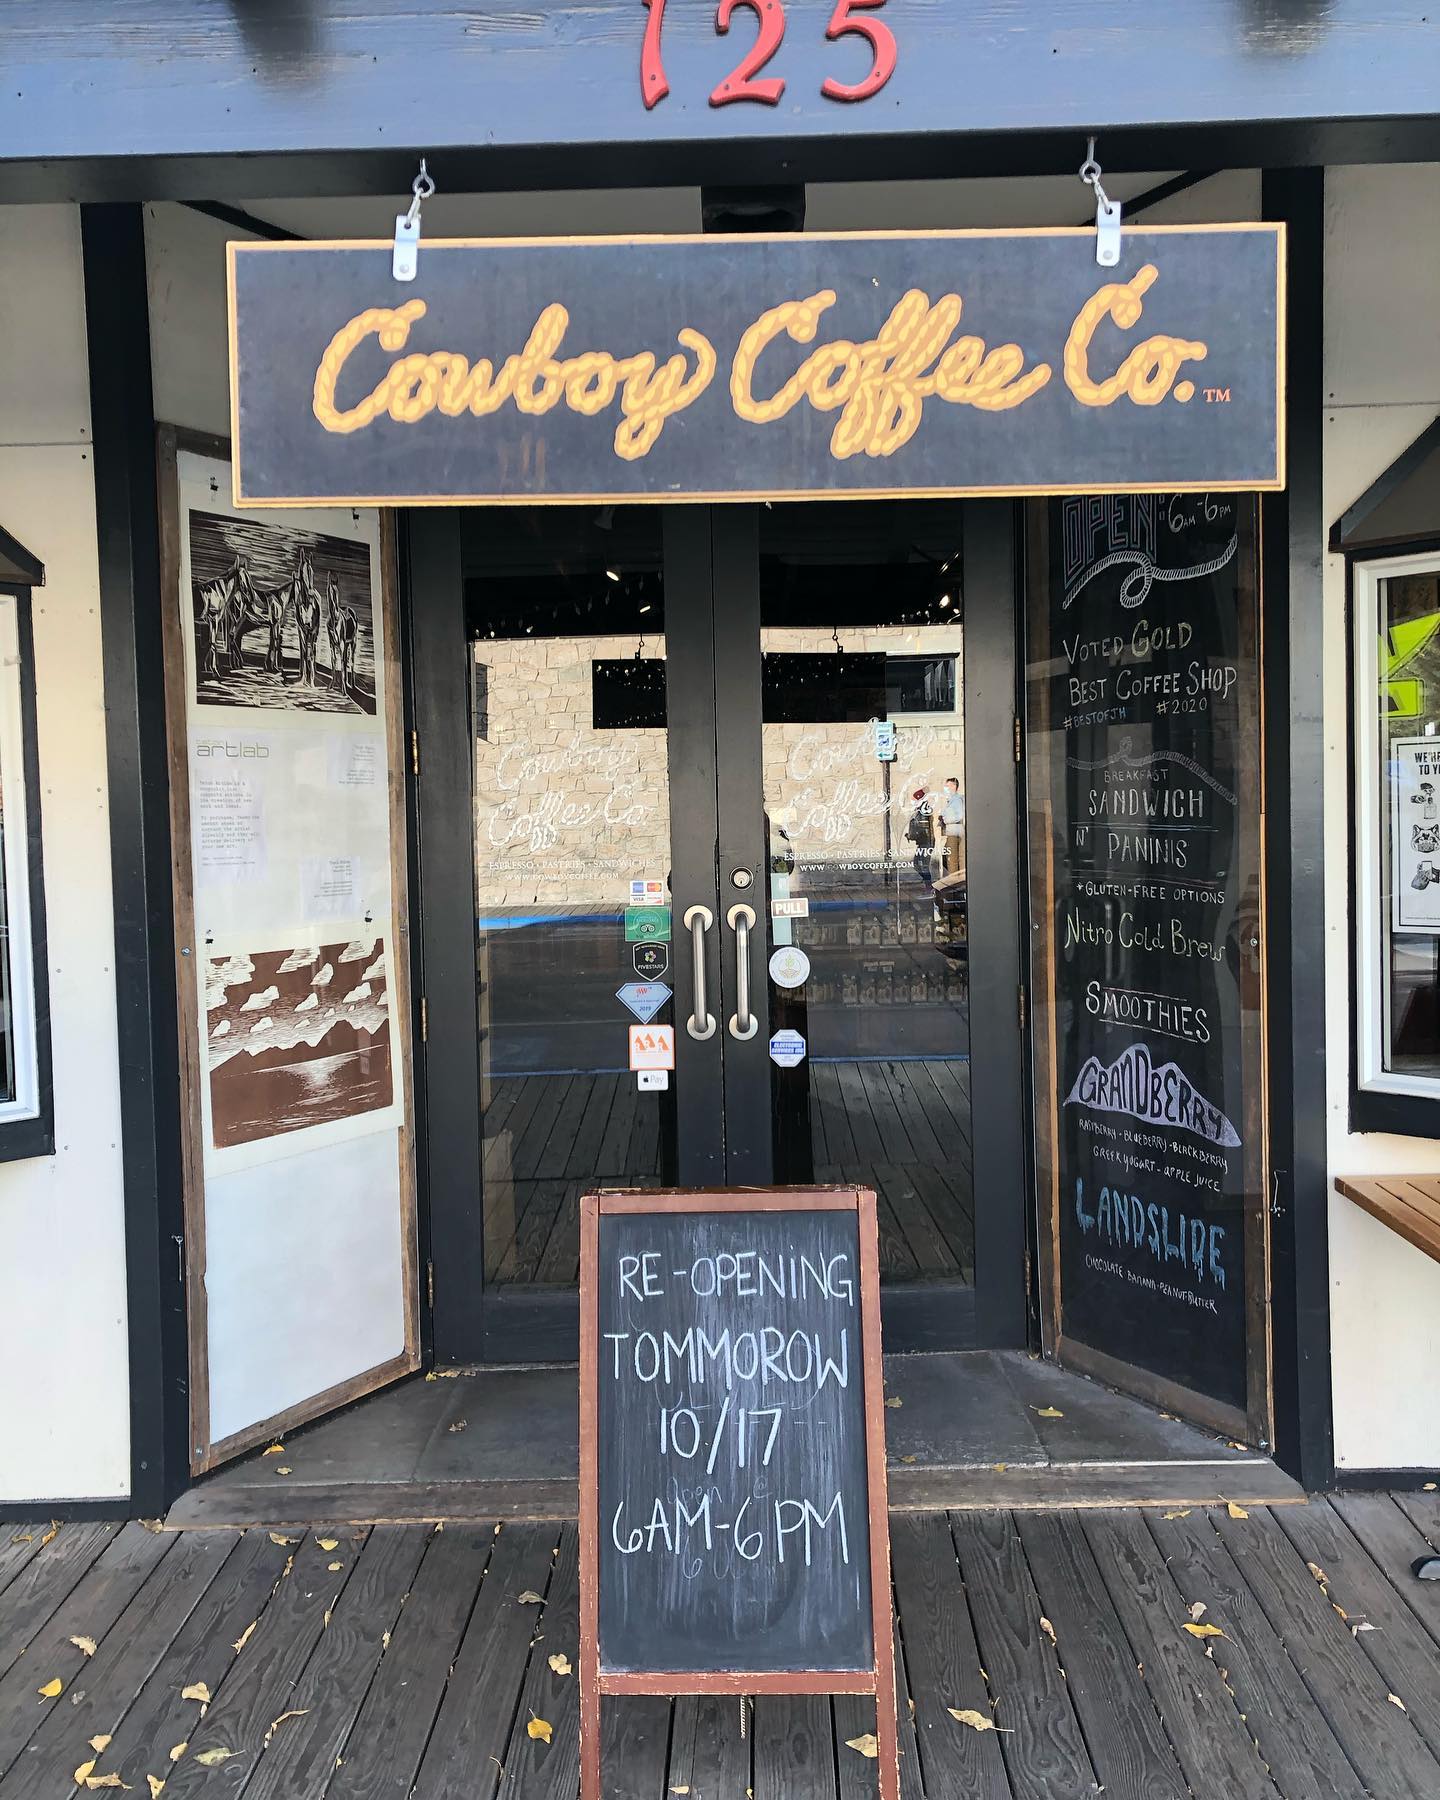 125
Cowboy Coffee Co.™
OPEN: 6AM-6PM
VOTED GOLD
BEST COFFEE SHOP
#BESTOFJH #2020
BREAKFAST
SANDWICH
N' PANINIS
*GLUTEN-FREE OPTIONS
Nitro Cold Brew
SMOOTHIES
GRANDBERRY
RASPBERRY-BLUEBERRY-BLACKBERRY
GREEK YOGURT-APPLE JUICE
LANDSLIDE
CHOCOLATE BANANA-PEANUT-BUTTER
artlab
Cowboy
Coffee Co.
ESPRESSO • PASTRIES • SANDWICHES
WWW.COWBOYCOFFEE.COM
Cowboy
Coffee Co.
ESPRESSO • PASTRIES • SANDWICHES
WWW.COWBOYCOFFEE.COM
VISA
PULL
FIVESTARS
2019
Pay
ELECTRONIC
SERVICES INC
WE'RE
TO Y
RE-OPENING
TOMMOROW
10/17
6AM-6PM